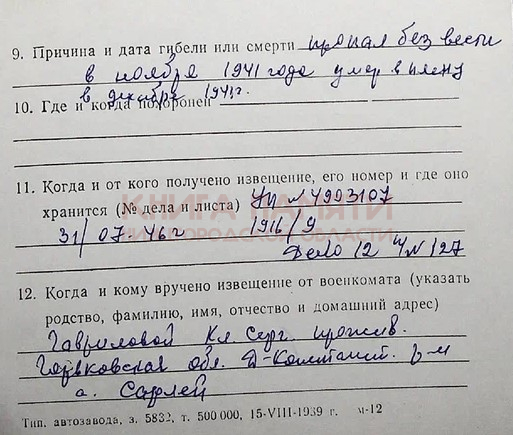 9. Причина и дата гибели или смерти пропал без вести
в ноябре 1941 года умер в плену
в декабре 1941г.
10. Где и когда похоронен
11. Когда и от кого получено извещение, его номер и где оно
хранится (№ дела и листа) УП №4903107
31/07.46г 1916/9
Дело 12 №127
12. Когда и кому вручено извещение от военкомата (указать
родство, фамилию, имя, отчество и домашний адрес)
Гавриловой Кл. Серг. прожив.
Горьковская обл. Д-Констант. р-н
с. Сарлей
Тип. автозавода, з. 5832, т. 500 000, 15-VIII-1989 г. м-12
КНИГА ПАМЯТИ
НИЖЕГОРОДСКОЙ ОБЛАСТИ